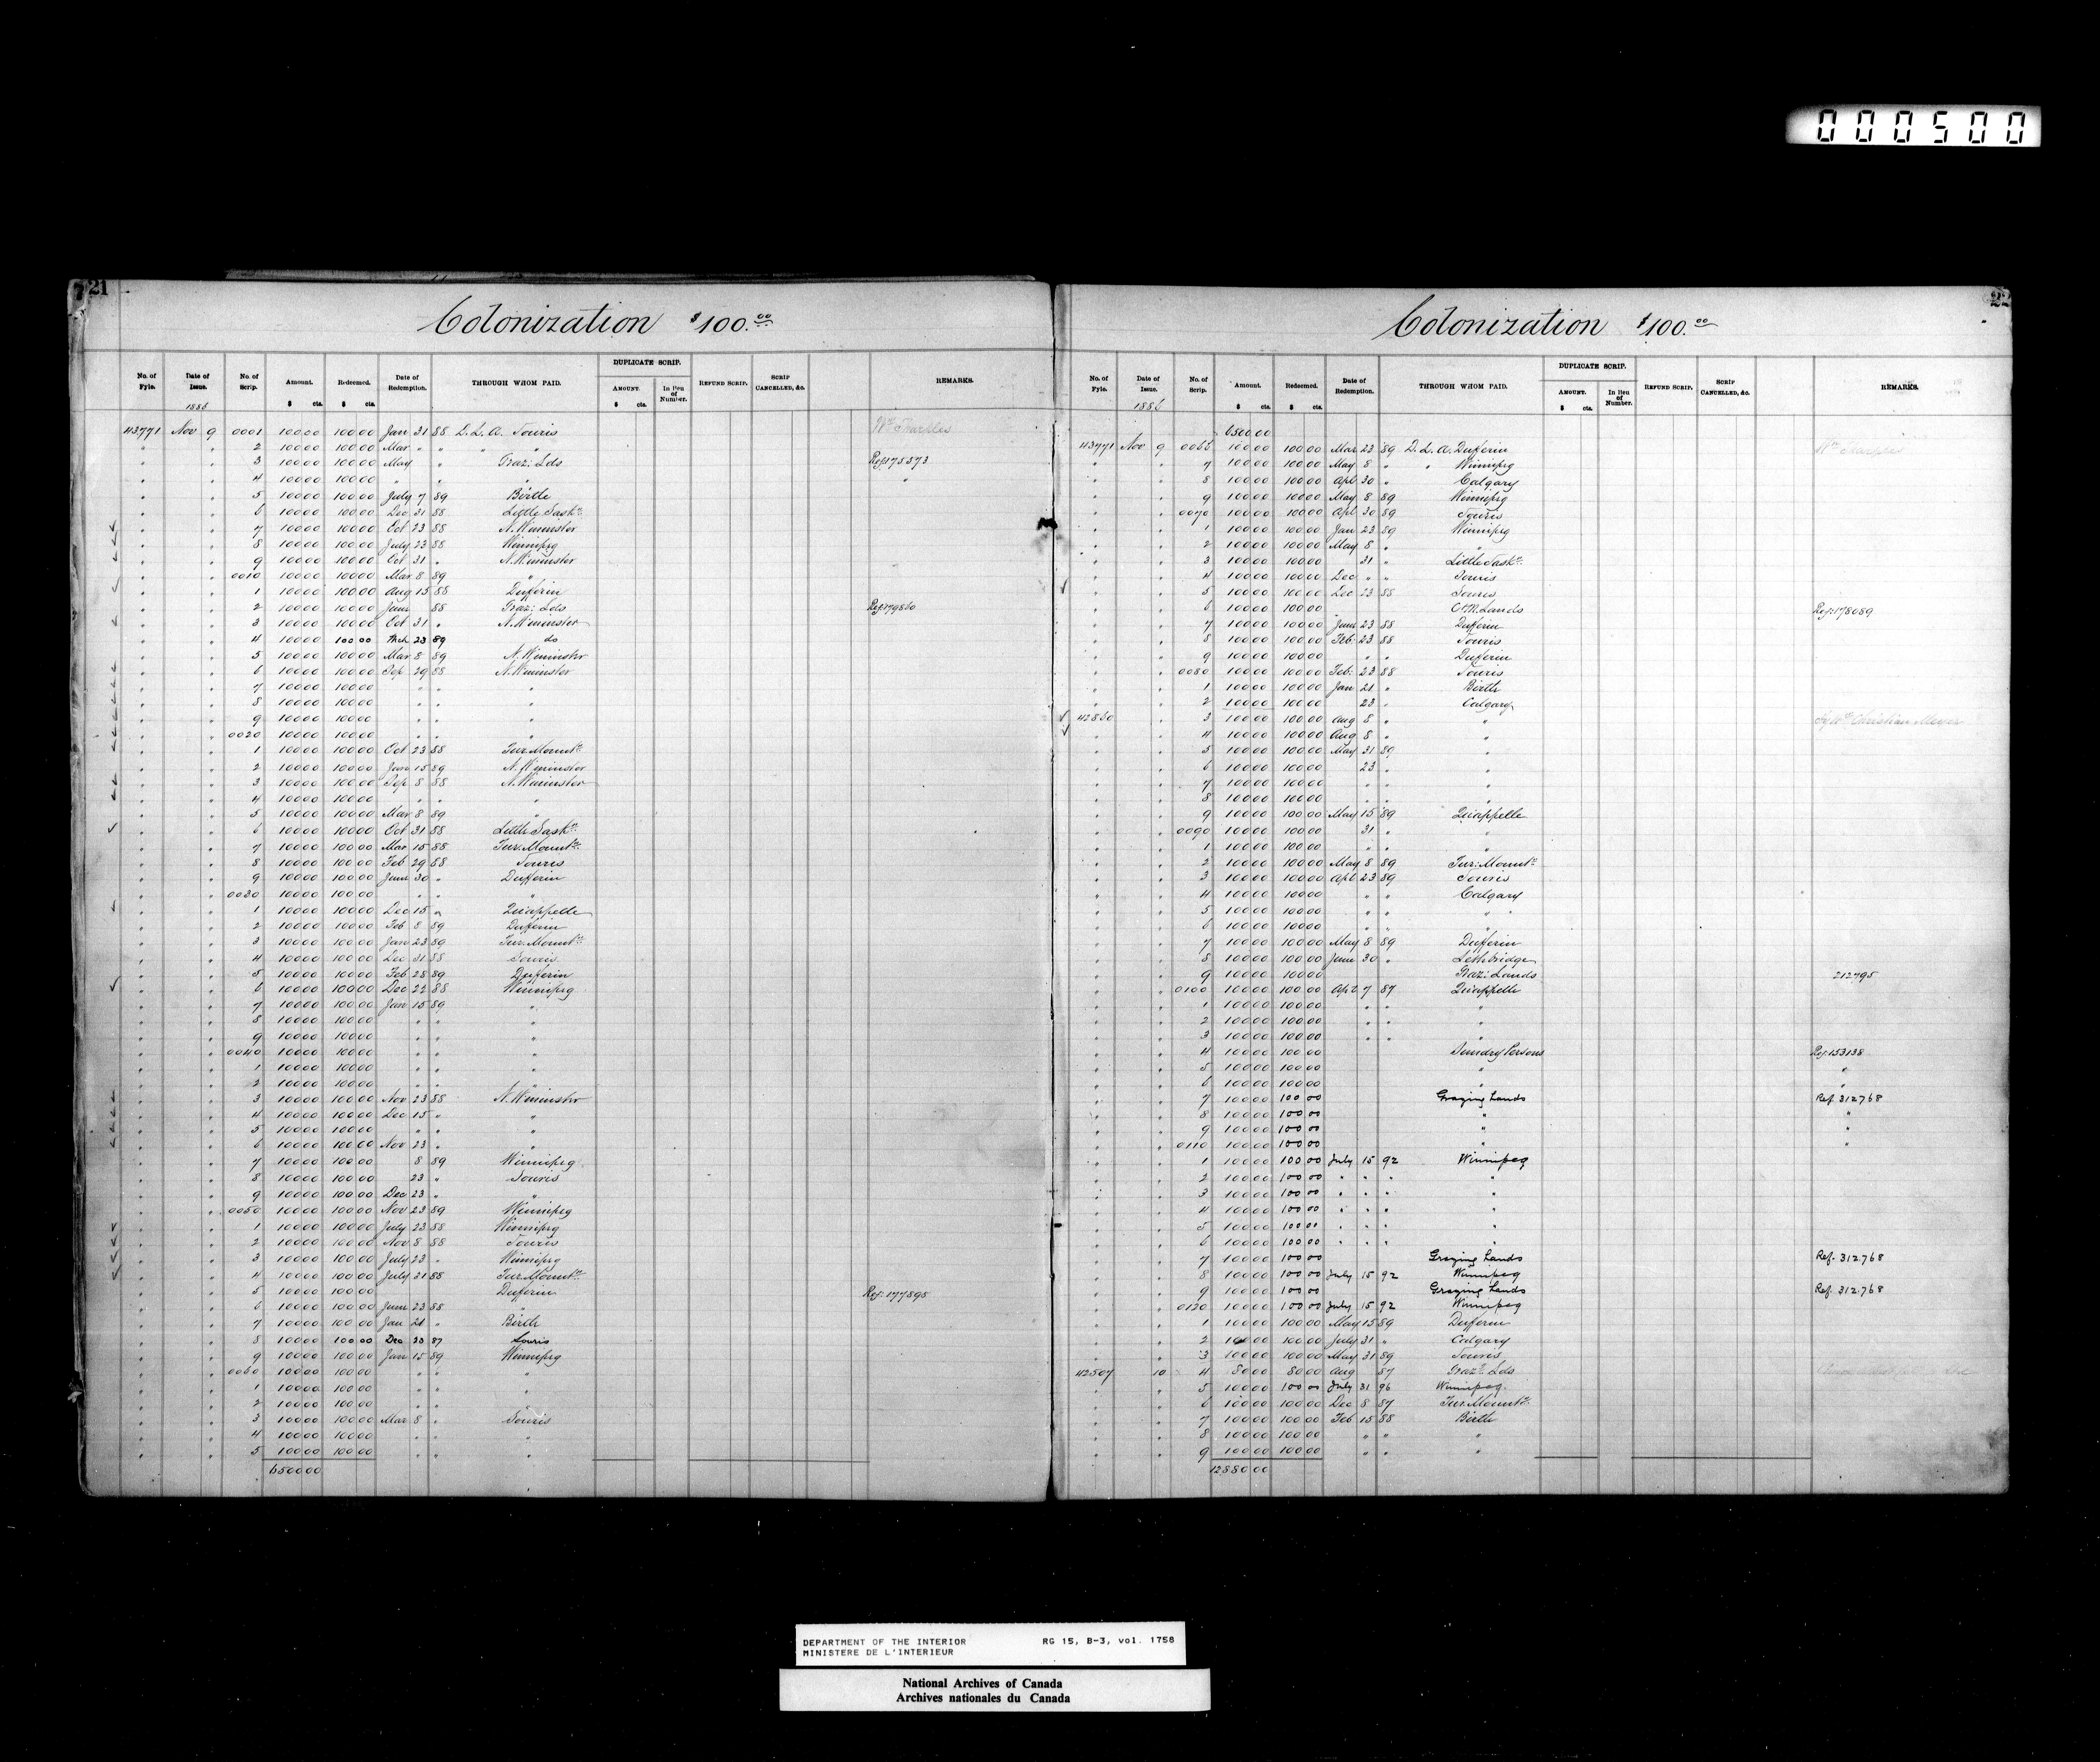 000500
21
Colonization $100.00
No. of Fyle. Date of Issue. No. of Scrip. Amount. Redeemed. Date of Redemption. THROUGH WHOM PAID. DUPLICATE SCRIP. AMOUNT. In lieu of Number. REFUND SCRIP. SCRIP CANCELLED, &c. REMARKS.
$ cts. $ cts. $ cts.
1886
43771 Nov 9 0001 100 00 100 00 Jan 31 88 D. L. A. Souris
" " 2 100 00 100 00 Mar " " " "
" " 3 100 00 100 00 May " Graz: Lds Ref 175373
" " 4 100 00 100 00 " " " "
" " 5 100 00 100 00 July 7 89 Birtle
" " 6 100 00 100 00 Dec 31 88 Little Sask:
" " 7 100 00 100 00 Oct 23 88 N. Wminster
" " 8 100 00 100 00 July 23 88 Winnipeg
" " 9 100 00 100 00 Oct 31 " N. Wminster
" " 0010 100 00 100 00 Mar 8 89 "
" " 1 100 00 100 00 Aug 15 88 Dufferin
" " 2 100 00 100 00 June 88 Graz: Lds Ref 179860
" " 3 100 00 100 00 Oct 31 " N. Wminster
" " 4 100 00 100 00 Mch 23 89 do
" " 5 100 00 100 00 Mar 8 89 N. Wminster
" " 6 100 00 100 00 Sep 29 88 N. Wminster
" " 7 100 00 100 00 " " "
" " 8 100 00 100 00 " " "
" " 9 100 00 100 00 " " "
" " 0020 100 00 100 00 " " "
" " 1 100 00 100 00 Oct 23 88 Tur. Mount:
" " 2 100 00 100 00 Jan 15 89 N. Wminster
" " 3 100 00 100 00 Sep 8 88 N. Wminster
" " 4 100 00 100 00 " " "
" " 5 100 00 100 00 Mar 8 89 "
" " 6 100 00 100 00 Oct 31 88 Little Sask:
" " 7 100 00 100 00 Mar 15 88 Tur: Mount:
" " 8 100 00 100 00 Feb 29 88 Souris
" " 9 100 00 100 00 June 30 " Dufferin
" " 0030 100 00 100 00 " " "
" " 1 100 00 100 00 Dec 15 " Quappelle
" " 2 100 00 100 00 Feb 8 89 Dufferin
" " 3 100 00 100 00 Jan 23 89 Tur. Mount:
" " 4 100 00 100 00 Dec 31 88 Souris
" " 5 100 00 100 00 Feb 28 89 Dufferin
" " 6 100 00 100 00 Dec 22 88 Winnipeg
" " 7 100 00 100 00 Jan 15 89 "
" " 8 100 00 100 00 " " "
" " 9 100 00 100 00 " " "
" " 0040 100 00 100 00 " " "
" " 1 100 00 100 00 " " "
" " 2 100 00 100 00 " " "
" " 3 100 00 100 00 Nov 23 88 N. Wminster
" " 4 100 00 100 00 Dec 15 " "
" " 5 100 00 100 00 " " "
" " 6 100 00 100 00 Nov 23 " "
" " 7 100 00 100 00 8 89 Winnipeg
" " 8 100 00 100 00 23 " Souris
" " 9 100 00 100 00 Dec 23 " "
" " 0050 100 00 100 00 Nov 23 89 Winnipeg
" " 1 100 00 100 00 July 23 88 Winnipeg
" " 2 100 00 100 00 Nov 8 88 Souris
" " 3 100 00 100 00 July 23 " Winnipeg
" " 4 100 00 100 00 July 31 88 Tur. Mount:
" " 5 100 00 100 00 Dufferin Ref: 177595
" " 6 100 00 100 00 June 23 88 "
" " 7 100 00 100 00 Jan 21 " Birtle
" " 8 100 00 100 00 Dec 23 87 Souris
" " 9 100 00 100 00 Jan 15 89 Winnipeg
" " 0060 100 00 100 00 " " "
" " 1 100 00 100 00 " " "
" " 2 100 00 100 00 " " "
" " 3 100 00 100 00 Mar 8 " Souris
" " 4 100 00 100 00 " " "
" " 5 100 00 100 00 " " "
6500 00
22
Colonization $100.00
No. of Fyle. Date of Issue. No. of Scrip. Amount. Redeemed. Date of Redemption. THROUGH WHOM PAID. DUPLICATE SCRIP. AMOUNT. In lieu of Number. REFUND SCRIP. SCRIP CANCELLED, &c. REMARKS.
$ cts. $ cts. $ cts.
1886
6500 00
43771 Nov 9 0066 100 00 100 00 Mar 23 89 D. L. A. Dufferin
" " 7 100 00 100 00 May 8 " " Winnipeg
" " 8 100 00 100 00 Apl 30 " Calgary
" " 9 100 00 100 00 May 8 89 Winnipeg
" " 0070 100 00 100 00 Apl 30 89 Souris
" " 1 100 00 100 00 Jan 23 89 Winnipeg
" " 2 100 00 100 00 May 8 " "
" " 3 100 00 100 00 31 " Little Sask:
" " 4 100 00 100 00 Dec " " Souris
" " 5 100 00 100 00 Dec 23 88 Souris
" " 6 100 00 100 00 O & M. Lands Ref: 178089
" " 7 100 00 100 00 June 23 88 Dufferin
" " 8 100 00 100 00 Feb: 23 88 Souris
" " 9 100 00 100 00 " " Dufferin
" " 0080 100 00 100 00 Feb: 23 88 Souris
" " 1 100 00 100 00 Jan 21 " Birtle
" " 2 100 00 100 00 23 " Calgary
42860 " 3 100 00 100 00 Aug 8 " " Christian Meyer
" " 4 100 00 100 00 Aug 8 " "
" " 5 100 00 100 00 May 31 89 "
" " 6 100 00 100 00 23 " "
" " 7 100 00 100 00 " " "
" " 8 100 00 100 00 " " "
" " 9 100 00 100 00 May 15 89 Quappelle
" " 0090 100 00 100 00 31 " "
" " 1 100 00 100 00 " "
" " 2 100 00 100 00 May 8 89 Tur: Mount:
" " 3 100 00 100 00 Apl 23 89 Souris
" " 4 100 00 100 00 " " Calgary
" " 5 100 00 100 00 " " "
" " 6 100 00 100 00 " " "
" " 7 100 00 100 00 May 8 89 Dufferin
" " 8 100 00 100 00 June 30 " Lethbridge
" " 9 100 00 100 00 Graz: Lands 212795
" " 0100 100 00 100 00 Apl 7 87 Quappelle
" " 1 100 00 100 00 " " "
" " 2 100 00 100 00 " " "
" " 3 100 00 100 00 " " "
" " 4 100 00 100 00 Sundry Persons Ref 153138
" " 5 100 00 100 00 " "
" " 6 100 00 100 00 " "
" " 7 100 00 100 00 Grazing Lands Ref. 312768
" " 8 100 00 100 00 " "
" " 9 100 00 100 00 " "
" " 0110 100 00 100 00 " "
" " 1 100 00 100 00 July 15 92 Winnipeg
" " 2 100 00 100 00 " " " "
" " 3 100 00 100 00 " " " "
" " 4 100 00 100 00 " " " "
" " 5 100 00 100 00 " " " "
" " 6 100 00 100 00 " " " "
" " 7 100 00 100 00 Grazing Lands Ref. 312768
" " 8 100 00 100 00 July 15 92 Winnipeg
" " 9 100 00 100 00 Grazing Lands Ref. 312768
" " 0120 100 00 100 00 July 15 92 Winnipeg
" " 1 100 00 100 00 May 15 89 Dufferin
" " 2 100 00 100 00 July 31 " Calgary
" " 3 100 00 100 00 May 31 89 Souris
42507 10 4 80 00 80 00 Aug 87 Graz: Lds
" " 5 100 00 100 00 July 31 96 Winnipeg
" " 6 100 00 100 00 Dec 8 87 Tur: Mount:
" " 7 100 00 100 00 Feb 15 88 Birtle
" " 8 100 00 100 00 " " "
" " 9 100 00 100 00 " " "
12880 00
DEPARTMENT OF THE INTERIOR RG 15, B-3, vol. 1758
MINISTERE DE L'INTERIEUR
National Archives of Canada
Archives nationales du Canada